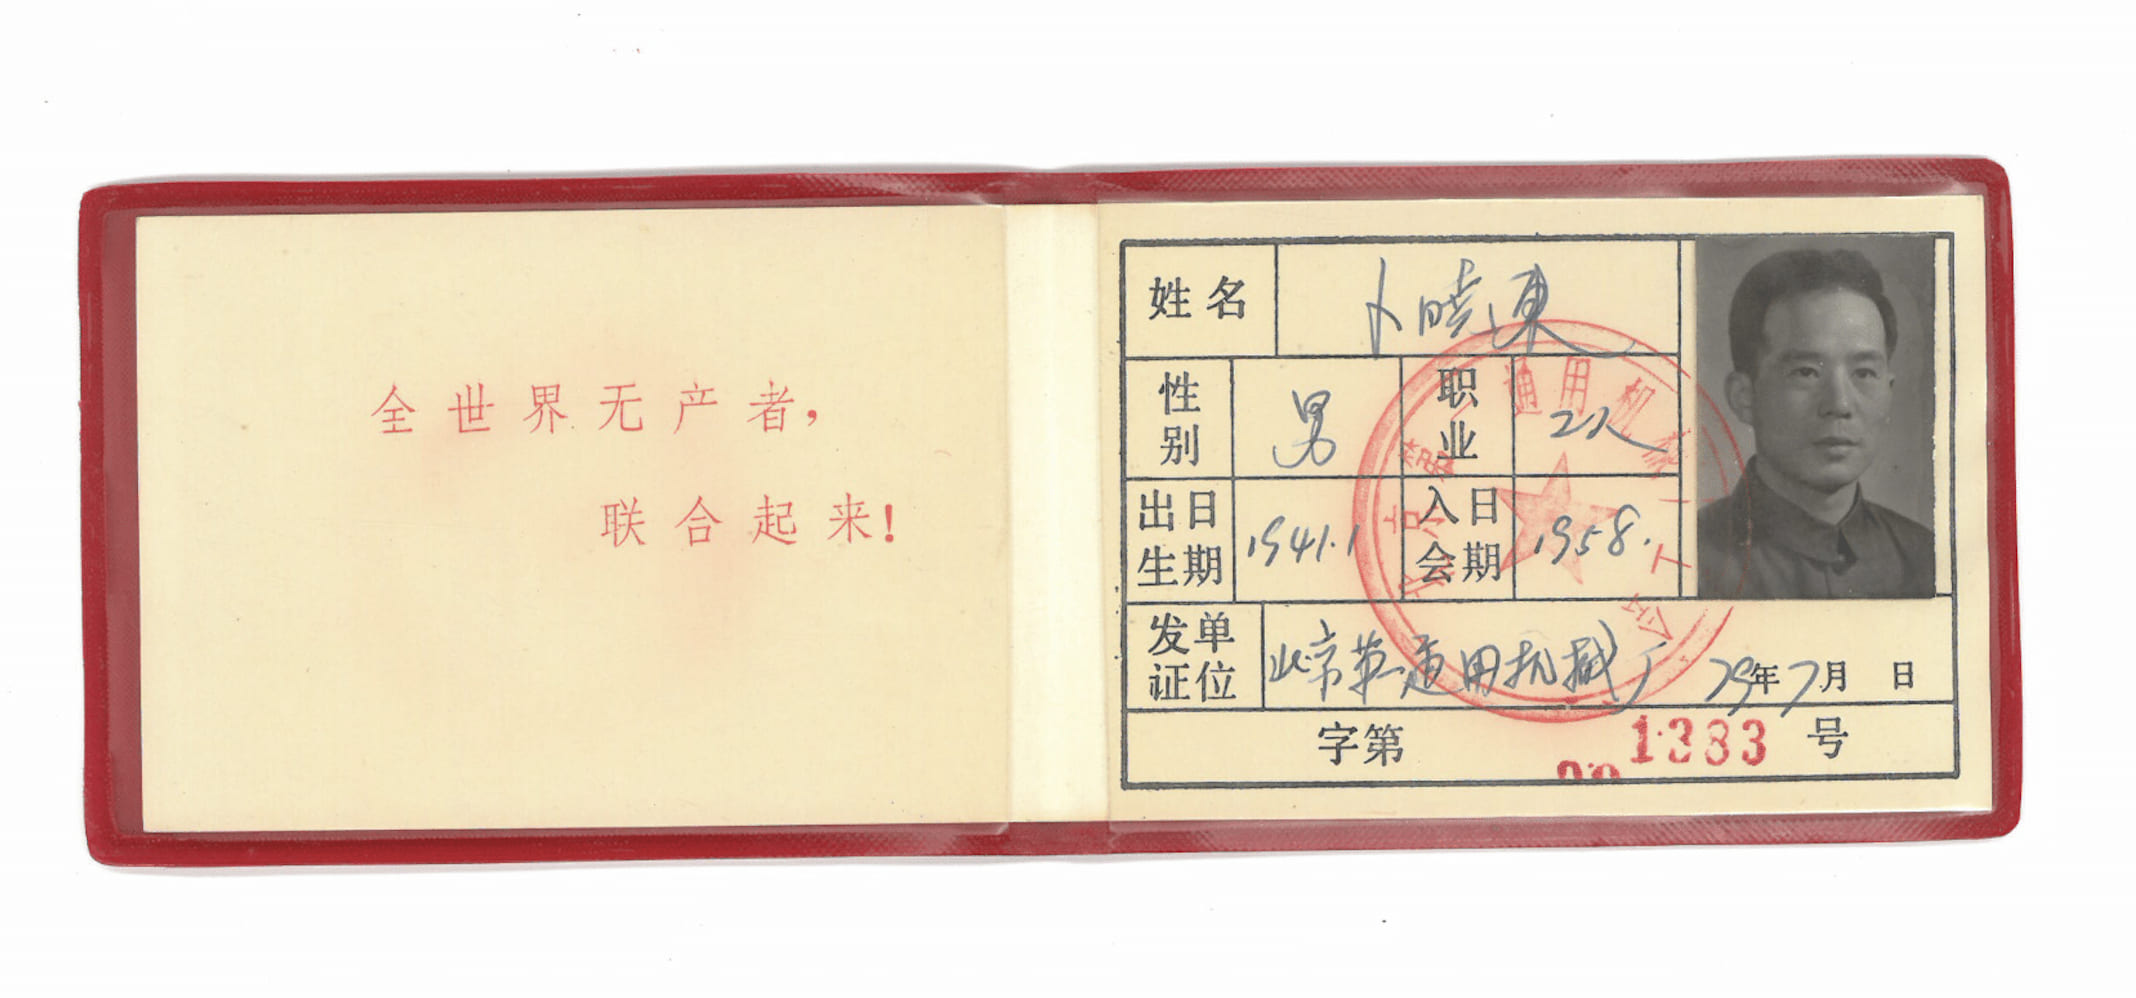 全世界无产者，
联合起来！
姓名 卜晓东
性别 男 职业 工人
出生日期 1941.1 入会日期 1958.
发证单位 北京第一通用机械厂 79年7月 日
字第 1383 号